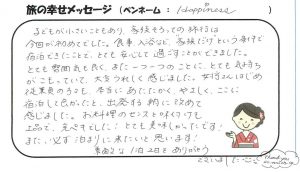 旅の幸せメッセージ (ペンネーム : Happiness )
子どもが小さいこともあり、家族そろっての旅行は
今回が初めてでした。食事、入浴など、家族だけという事で
宿泊できたことで、とても安心して過すことができました。
とても雰囲気も良く、また一つ一つのことに、とても気持ち
がこもっていて、大変うれしく感じました。女将さんはじめ
従業員の方も、本当にあたたかく、やさしく、ここに
宿泊して良かったと、出発する朝に改めて
感じました。お料理のセンスともりつけも
上品で、見た目もとても美味しかったです!
また、必ず泊りに来たいと思います!
素敵な1泊2日をありがとう
Thank you